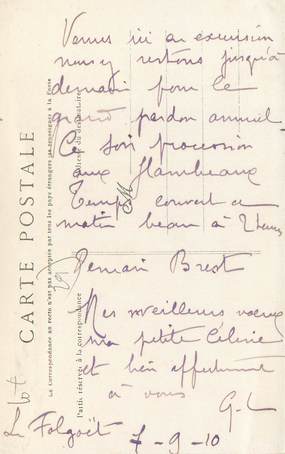 Venues ici en excursion
nous y restons jusqu'à
demain pour le
grand pardon annuel
Ce soir procession
aux flambeaux
Temps couvert ce
matin beau à 2 heures
Demain Brest
Mes meilleurs vœux
ma petite Célinie
et bien affectueuse
à vous
G-L
Le Folgoët
7-9-10
CARTE POSTALE
La Correspondance au recto n'est pas acceptée par tous les pays étrangers se renseigner à la Poste
Partie réservée à la correspondance